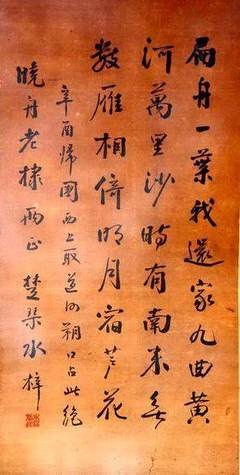 扁舟一葉我還家九曲黃
河萬里沙時有南來無
數雁相倚明月宿芦花
辛酉帰國西上取道河朔口占此絕
曉舟老棣両正 楚琹水梓